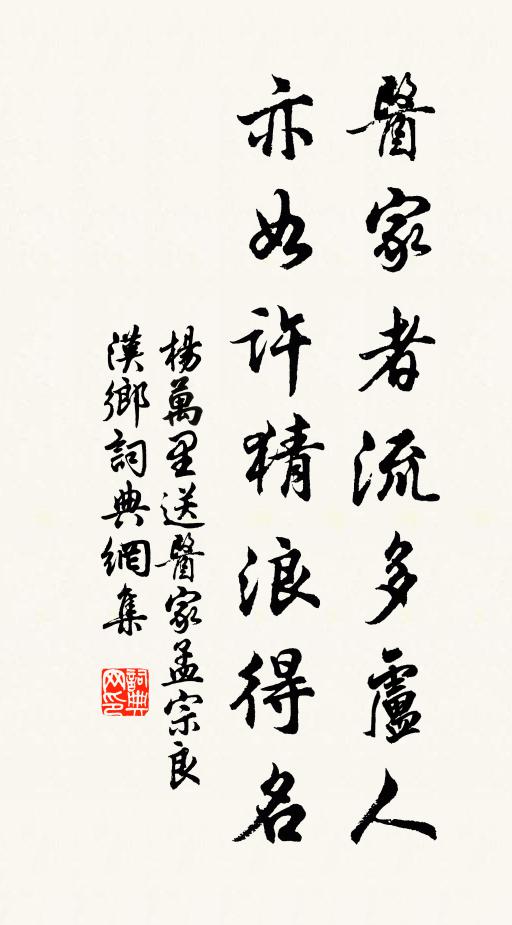 醫家者流多盧人
亦如許猜浪得名
楊萬里送醫家孟宗良
漢鄉詞典網集
詞典网印